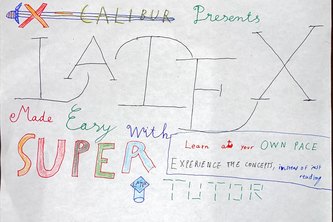 X-CALIBUR Presents
LATEX
Made Easy With
SUPER
Learn at your OWN PACE
EXPERIENCE THE CONCEPTS, instead of just
reading
TUTOR